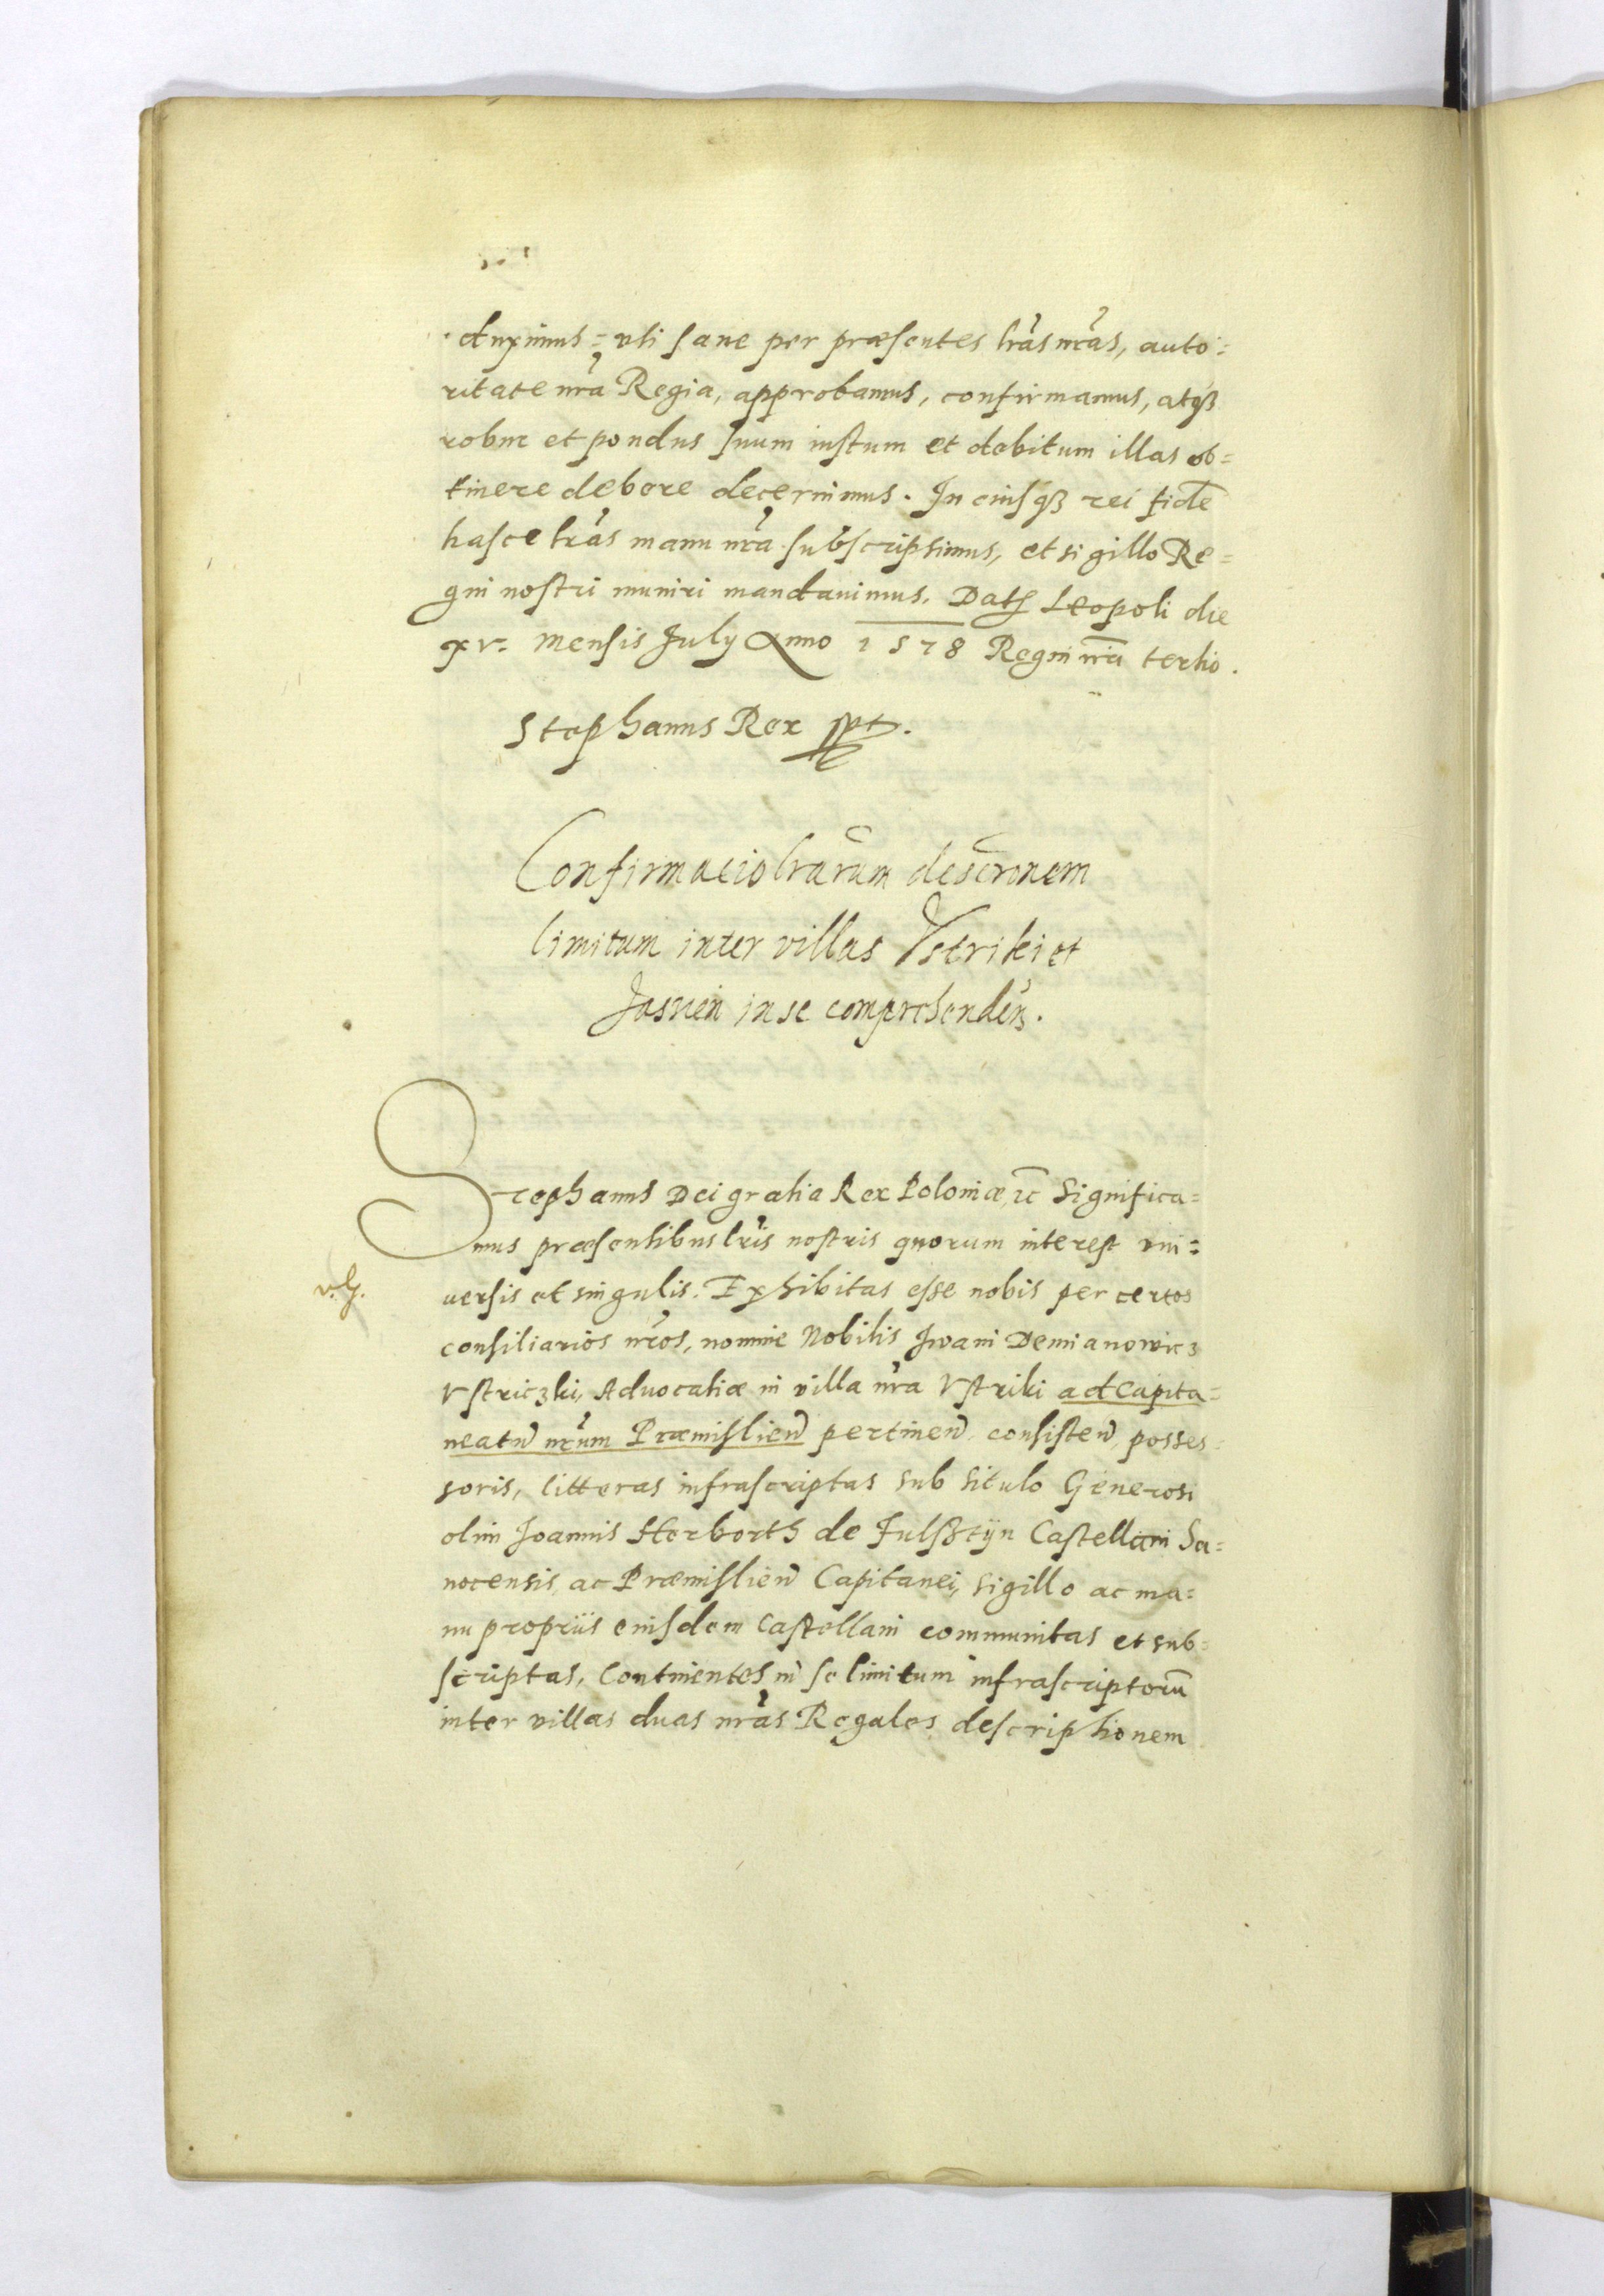 duximus = uti sane per præsentes lrãs nrãs, auto=
ritate nrã Regia, approbamus, confirmamus, atqȝ
robur et pondus suum iustum et debitum illas ob=
tinere debere decernimus. In cuiusqȝ rei fidẽ
hasce lrãs manu nrã subscripsimus, et sigillo Re=
gni nostri muniri mandauimus. Datƺ Leopoli die
xv. Mensis July Anno 1578 Regni nrĩ tertio.
Stephanus Rex sspt.
Confirmacio lrãrum descrõnem
limitum inter villas Vstriki et
Jasnen in se comprehendeñ.
Stephanus Dei gratia Rex Poloniæ, ꝛc̃ Significa=
mus præsentibus lrĩs nostris quorum interest vni=
v. g.
uersis et singulis. Exhibitas esse nobis per certos
consiliarios nrõs, nomine Nobilis Iwani Demianowicz
Vstriczki, Aduocatiæ in villa nrã Vstriki ad Capita=
neatũ nrũm Præmisslieñ pertineñ consisteñ, posses=
soris, litteras infrascriptas sub titulo Generosi
olim Joannis Herborth de Fulsstijn Castellani Sa=
nocensis, ac Præmisslieñ Capitanei, sigillo ac ma=
nu propriis eiusdem Castellani communitas et sub=
scriptas, Continentes in se limitum infrascriptorũ
inter villas duas nrãs Regales descriptionem